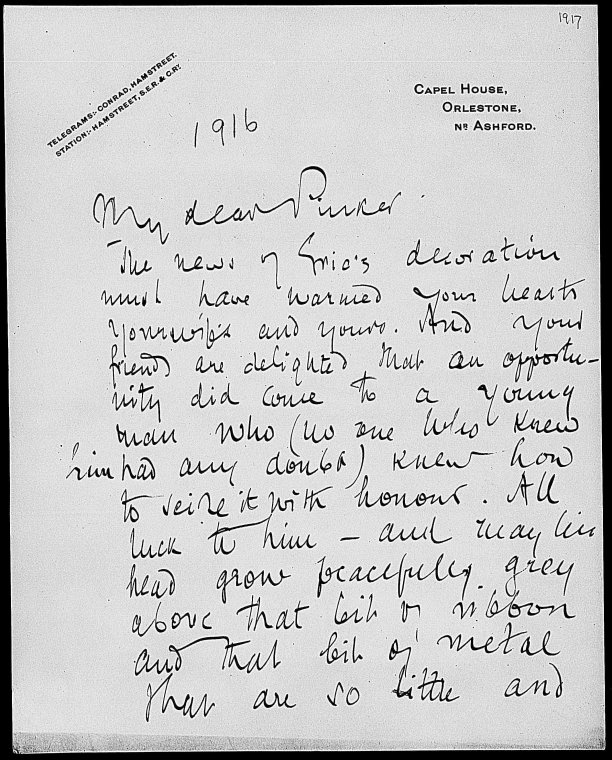 1917
TELEGRAMS:- CONRAD, HAMSTREET.
STATION:- HAMSTREET, S.E.R. & C.RY.
CAPEL HOUSE,
ORLESTONE,
NR ASHFORD.
1916
My dear Pinker
The news of Eric's decoration
must have warmed your hearts
your wife's and yours. And your
friends are delighted that an opportu-
nity did come to a young
man who (no one who knew
him had any doubt) knew how
to seize it with honour. All
luck to him – and may his
head grow peacefully grey
above that bit of ribbon
and that bit of metal
that are so little and